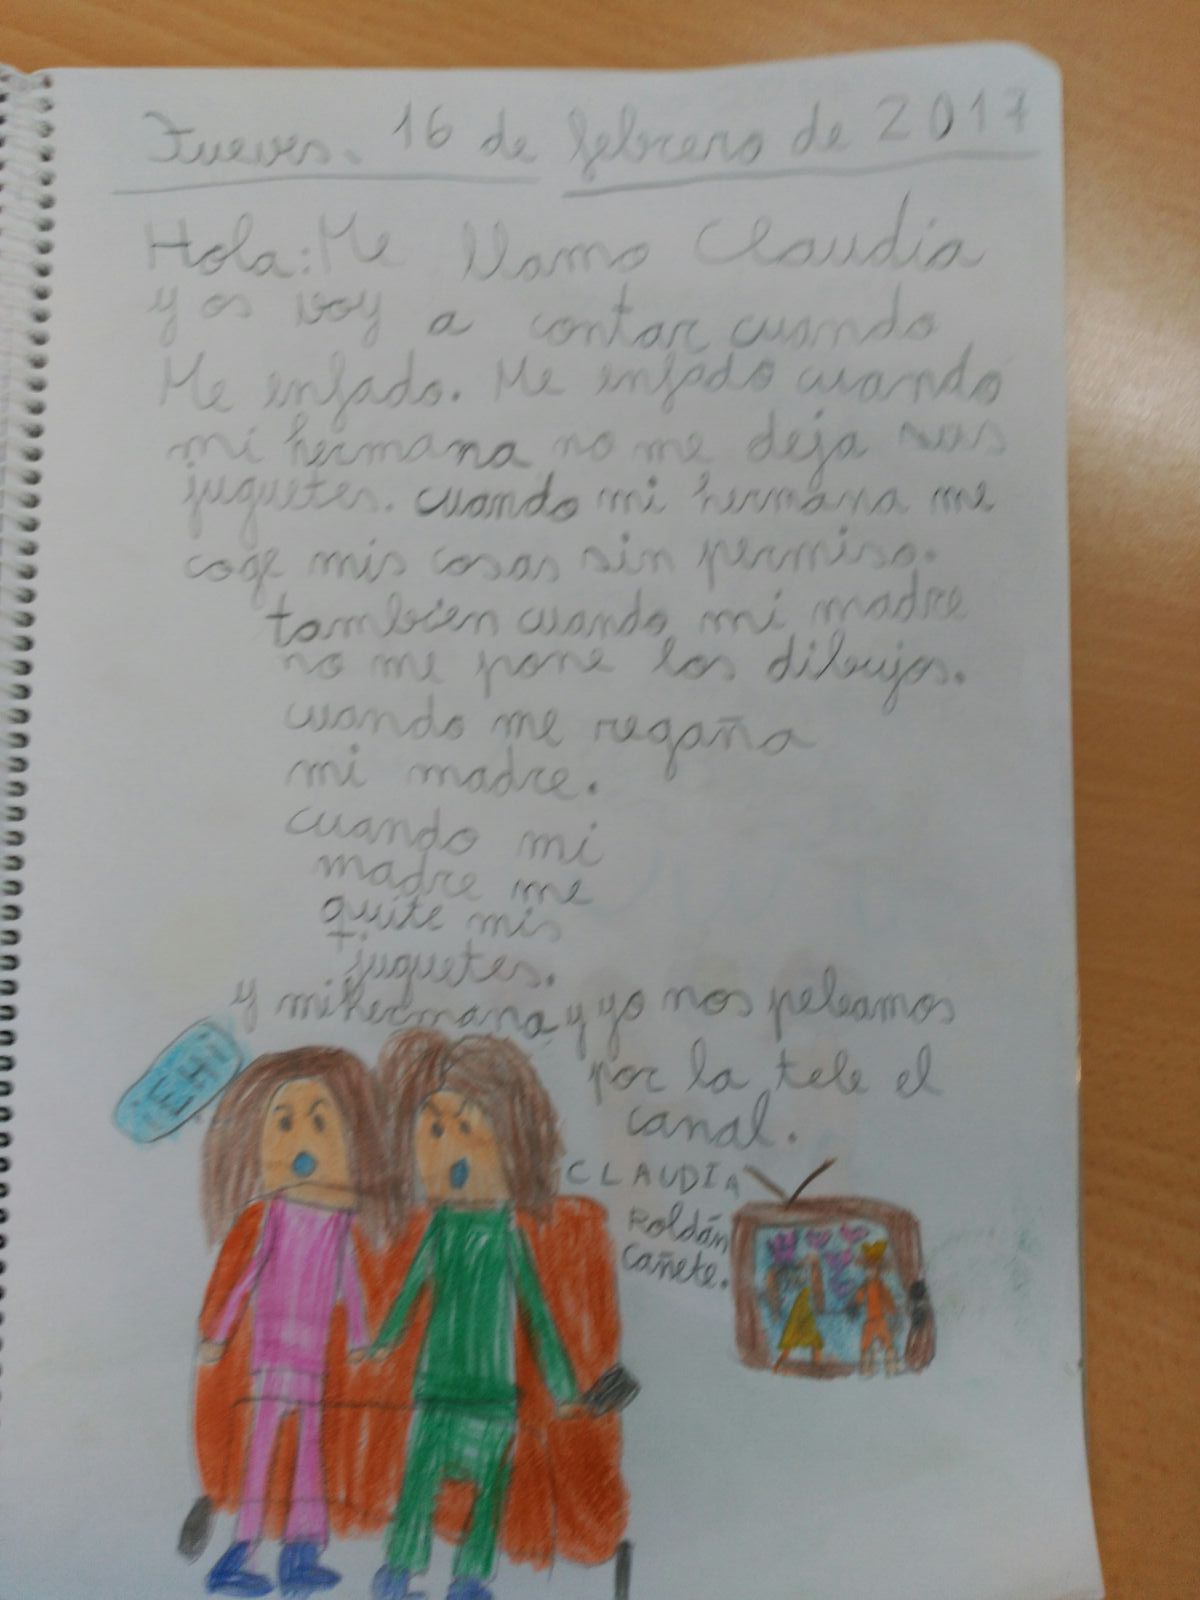 Jueves. 16 de febrero de 2017
Hola: Me llamo Claudia
y os voy a contar cuando
Me enfado. Me enfado cuando
mi hermana no me deja sus
juguetes. cuando mi hermana me
coge mis cosas sin permiso.
tambien cuando mi madre
no me pone los dibujos.
cuando me regaña
mi madre.
cuando mi
madre me
quite mis
juguetes.
y mi hermana y yo nos peleamos
por la tele el
canal.
EH!
CLAUDIA
Roldán
Cañete.